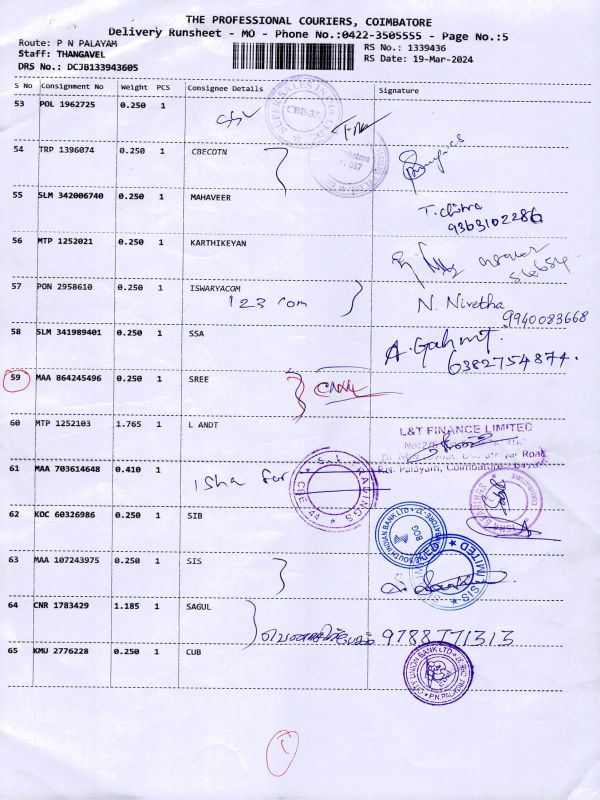 THE PROFESSIONAL COURIERS, COIMBATORE
Delivery Runsheet - MO - Phone No.:0422-3505555 - Page No.:5
Route: P N PALAYAM
Staff: THANGAVEL
DRS No.: DCJB133943605
RS No.: 1339436
RS Date: 19-Mar-2024
S No Consignment No Weight PCS Consignee Details Signature
53 POL 1962725 0.250 1
CBE-37
54 TRP 1396074 0.250 1 CBECOTN
55 SLM 342006740 0.250 1 MAHAVEER
T. chitra
9363102286
56 MTP 1252021 0.250 1 KARTHIKEYAN
57 PON 2958610 0.250 1 ISWARYACOM
123 com
N. Nivetha
9940083668
58 SLM 341989401 0.250 1 SSA
6382754874.
59 MAA 864245496 0.250 1 SREE
60 MTP 1252103 1.765 1 L ANDT
L&T FINANCE LIMITED
P.N. Palayam, Coimbatore
61 MAA 703614648 0.410 1
Isha
CBE-44
62 KOC 60326986 0.250 1 SIB
SOUTH INDIAN BANK LTD
63 MAA 107243975 0.250 1 SIS
SIS LIMITED
64 CNR 1783429 1.185 1 SAGUL
9788771313
65 KMU 2776228 0.250 1 CUB
CITY UNION BANK LTD
P N PALAYAM